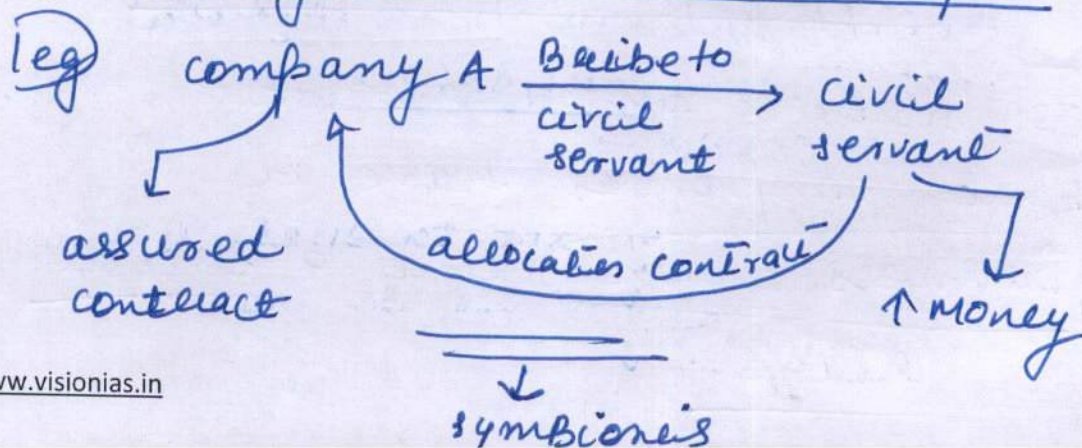 leg) company A Bribe to civil servant → civil servant
assured contract
allocates contract
↑ money
ww.visionias.in
↓
symbiosis